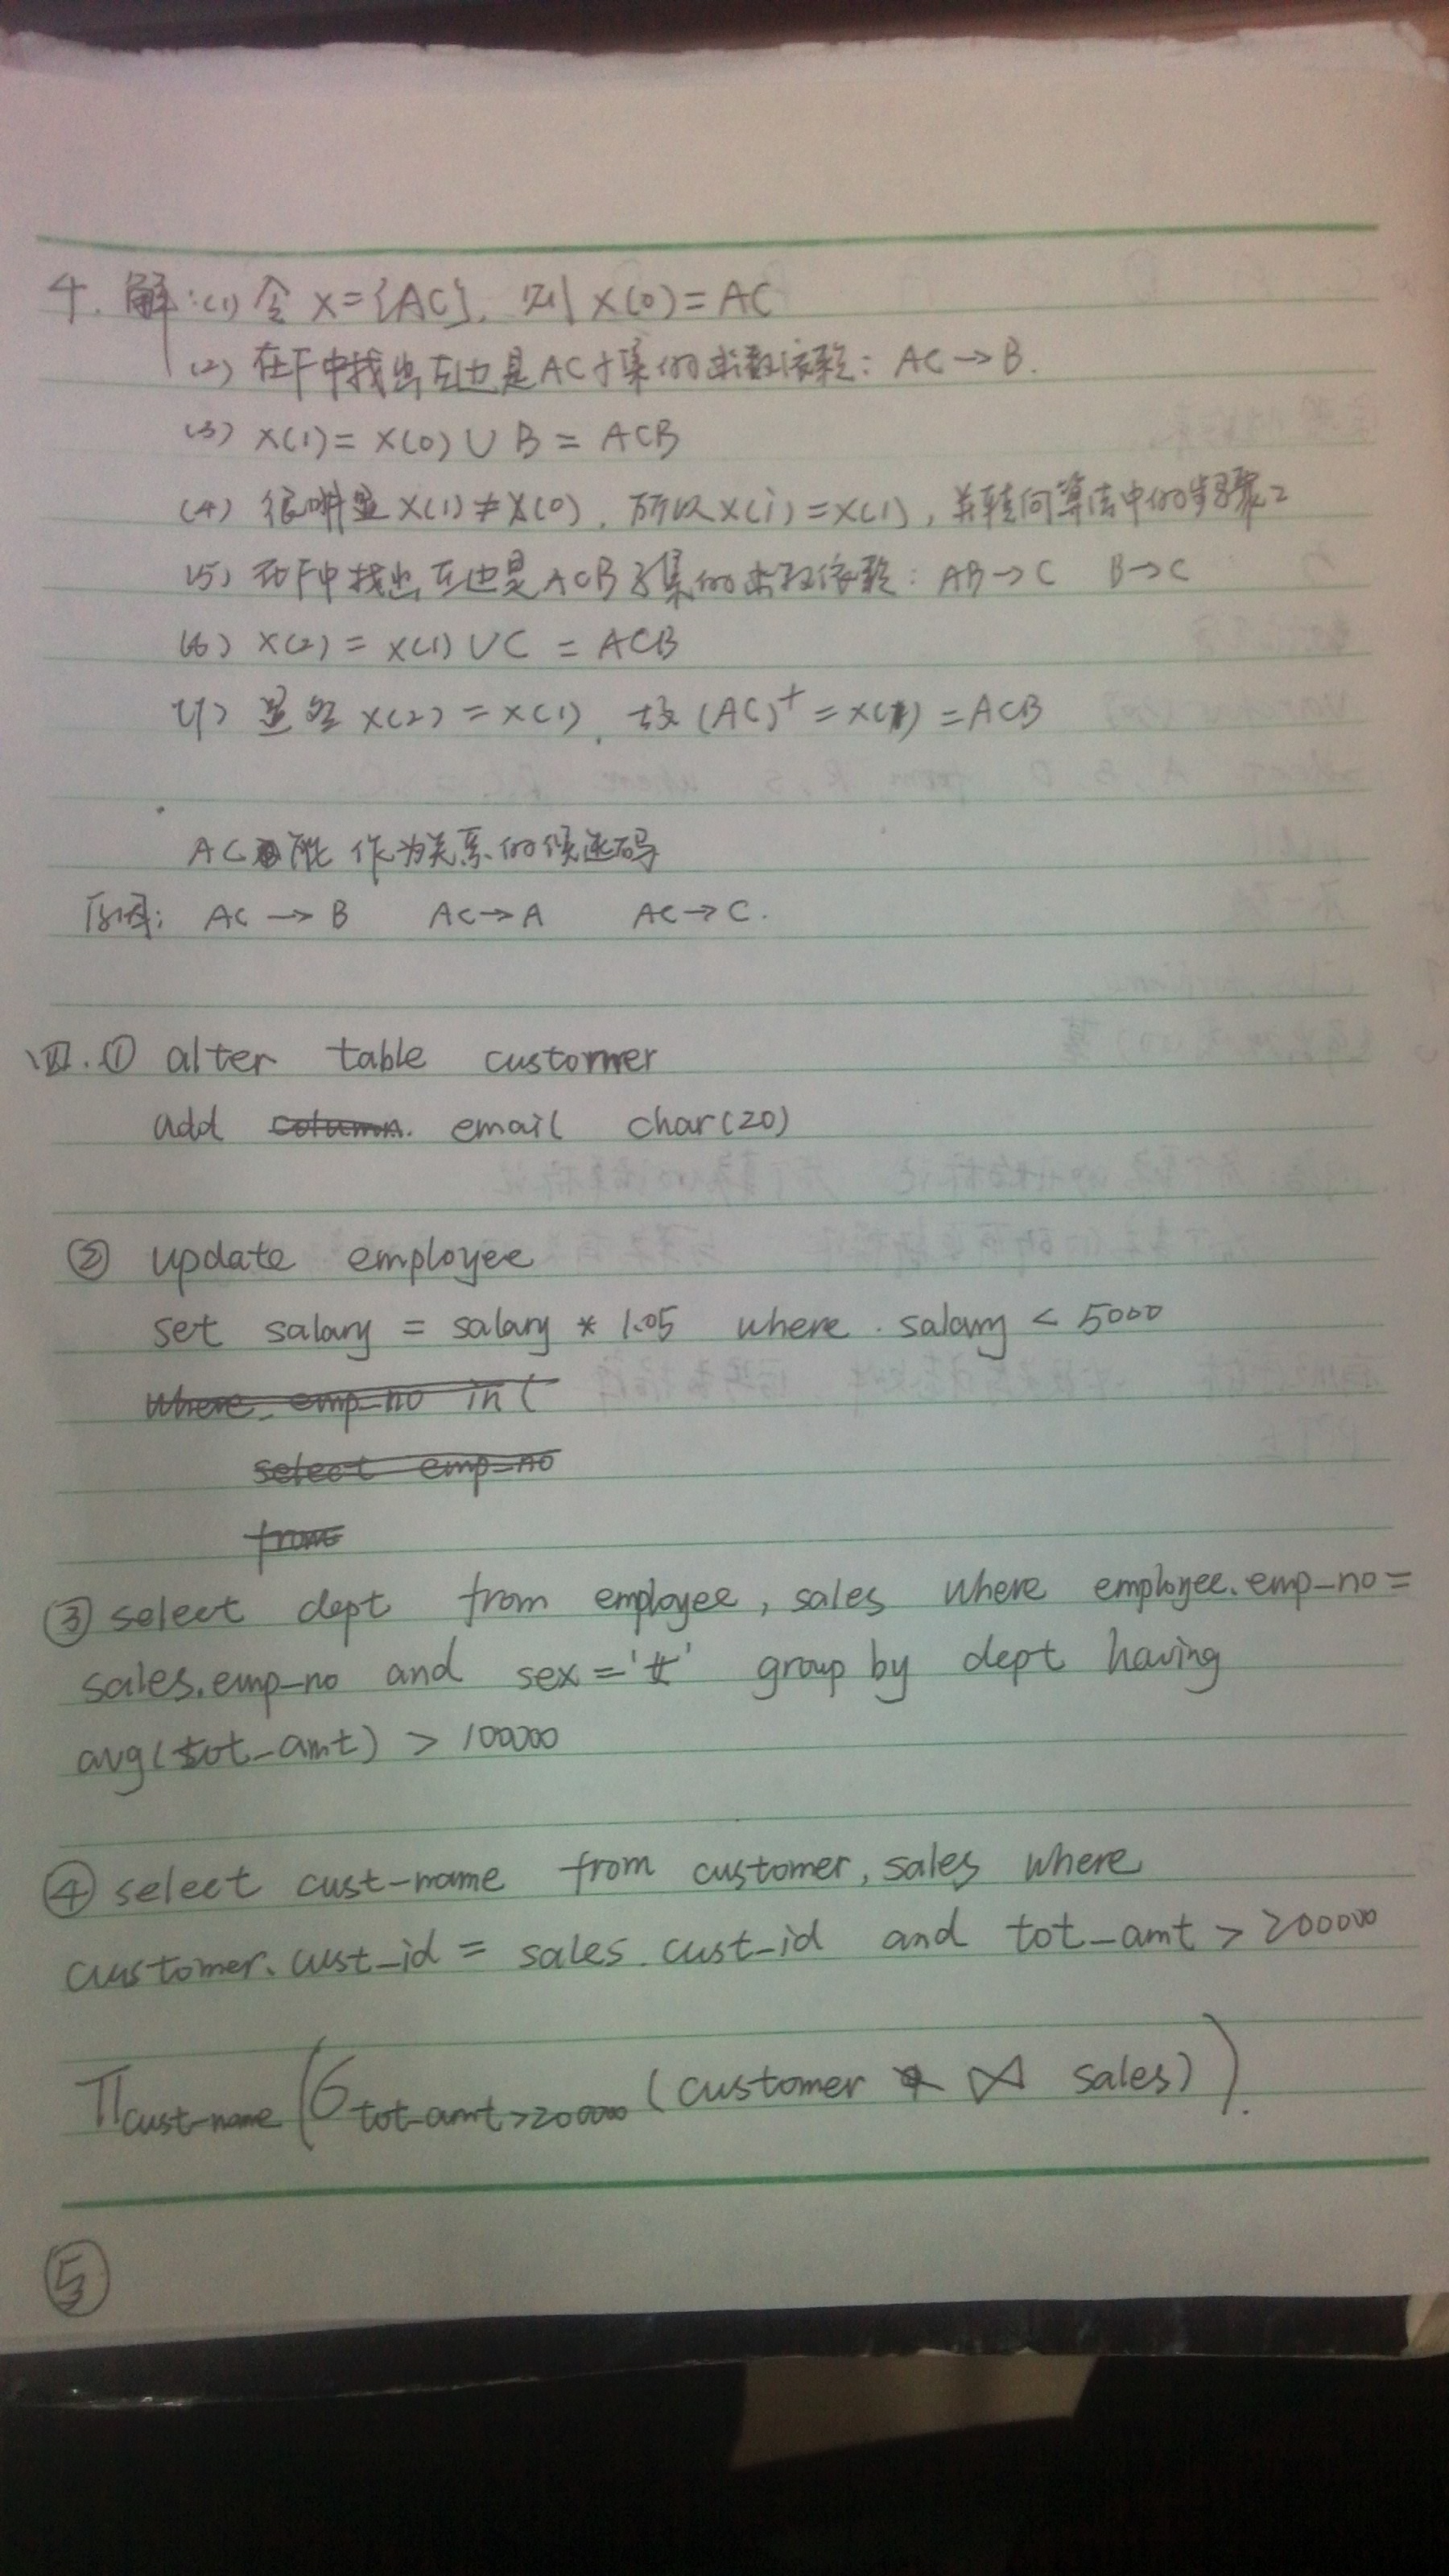 4. 解:(1) 令 X={AC}, 则 X(0)=AC
(2) 在F中找出左边是AC子集的函数依赖: AC→B.
(3) X(1)=X(0)∪B=ACB
(4) 很明显X(1)≠X(0), 所以X(i)=X(1), 并转向算法中的步骤2
(5) 在F中找出左边是ACB子集的函数依赖: AB→C B→C
(6) X(2)=X(1)∪C=ACB
(7) 显然 X(2)=X(1), 故(AC)⁺=X(1)=ACB
AC 能 作为关系的候选码
原因: AC→B AC→A AC→C.
四.① alter table customer
add column. email char(20)
② update employee
set salary = salary * 1.05 where salary < 5000
where emp-no in (
select emp-no
from
③ select dept from employee, sales where employee.emp-no=
sales.emp-no and sex='女' group by dept having
avg(tot-amt) > 100000
④ select cust-name from customer, sales where
customer.cust-id = sales.cust-id and tot-amt > 200000
Π cust-name (σ tot-amt>200000 (customer ⋈ sales)).
⑤